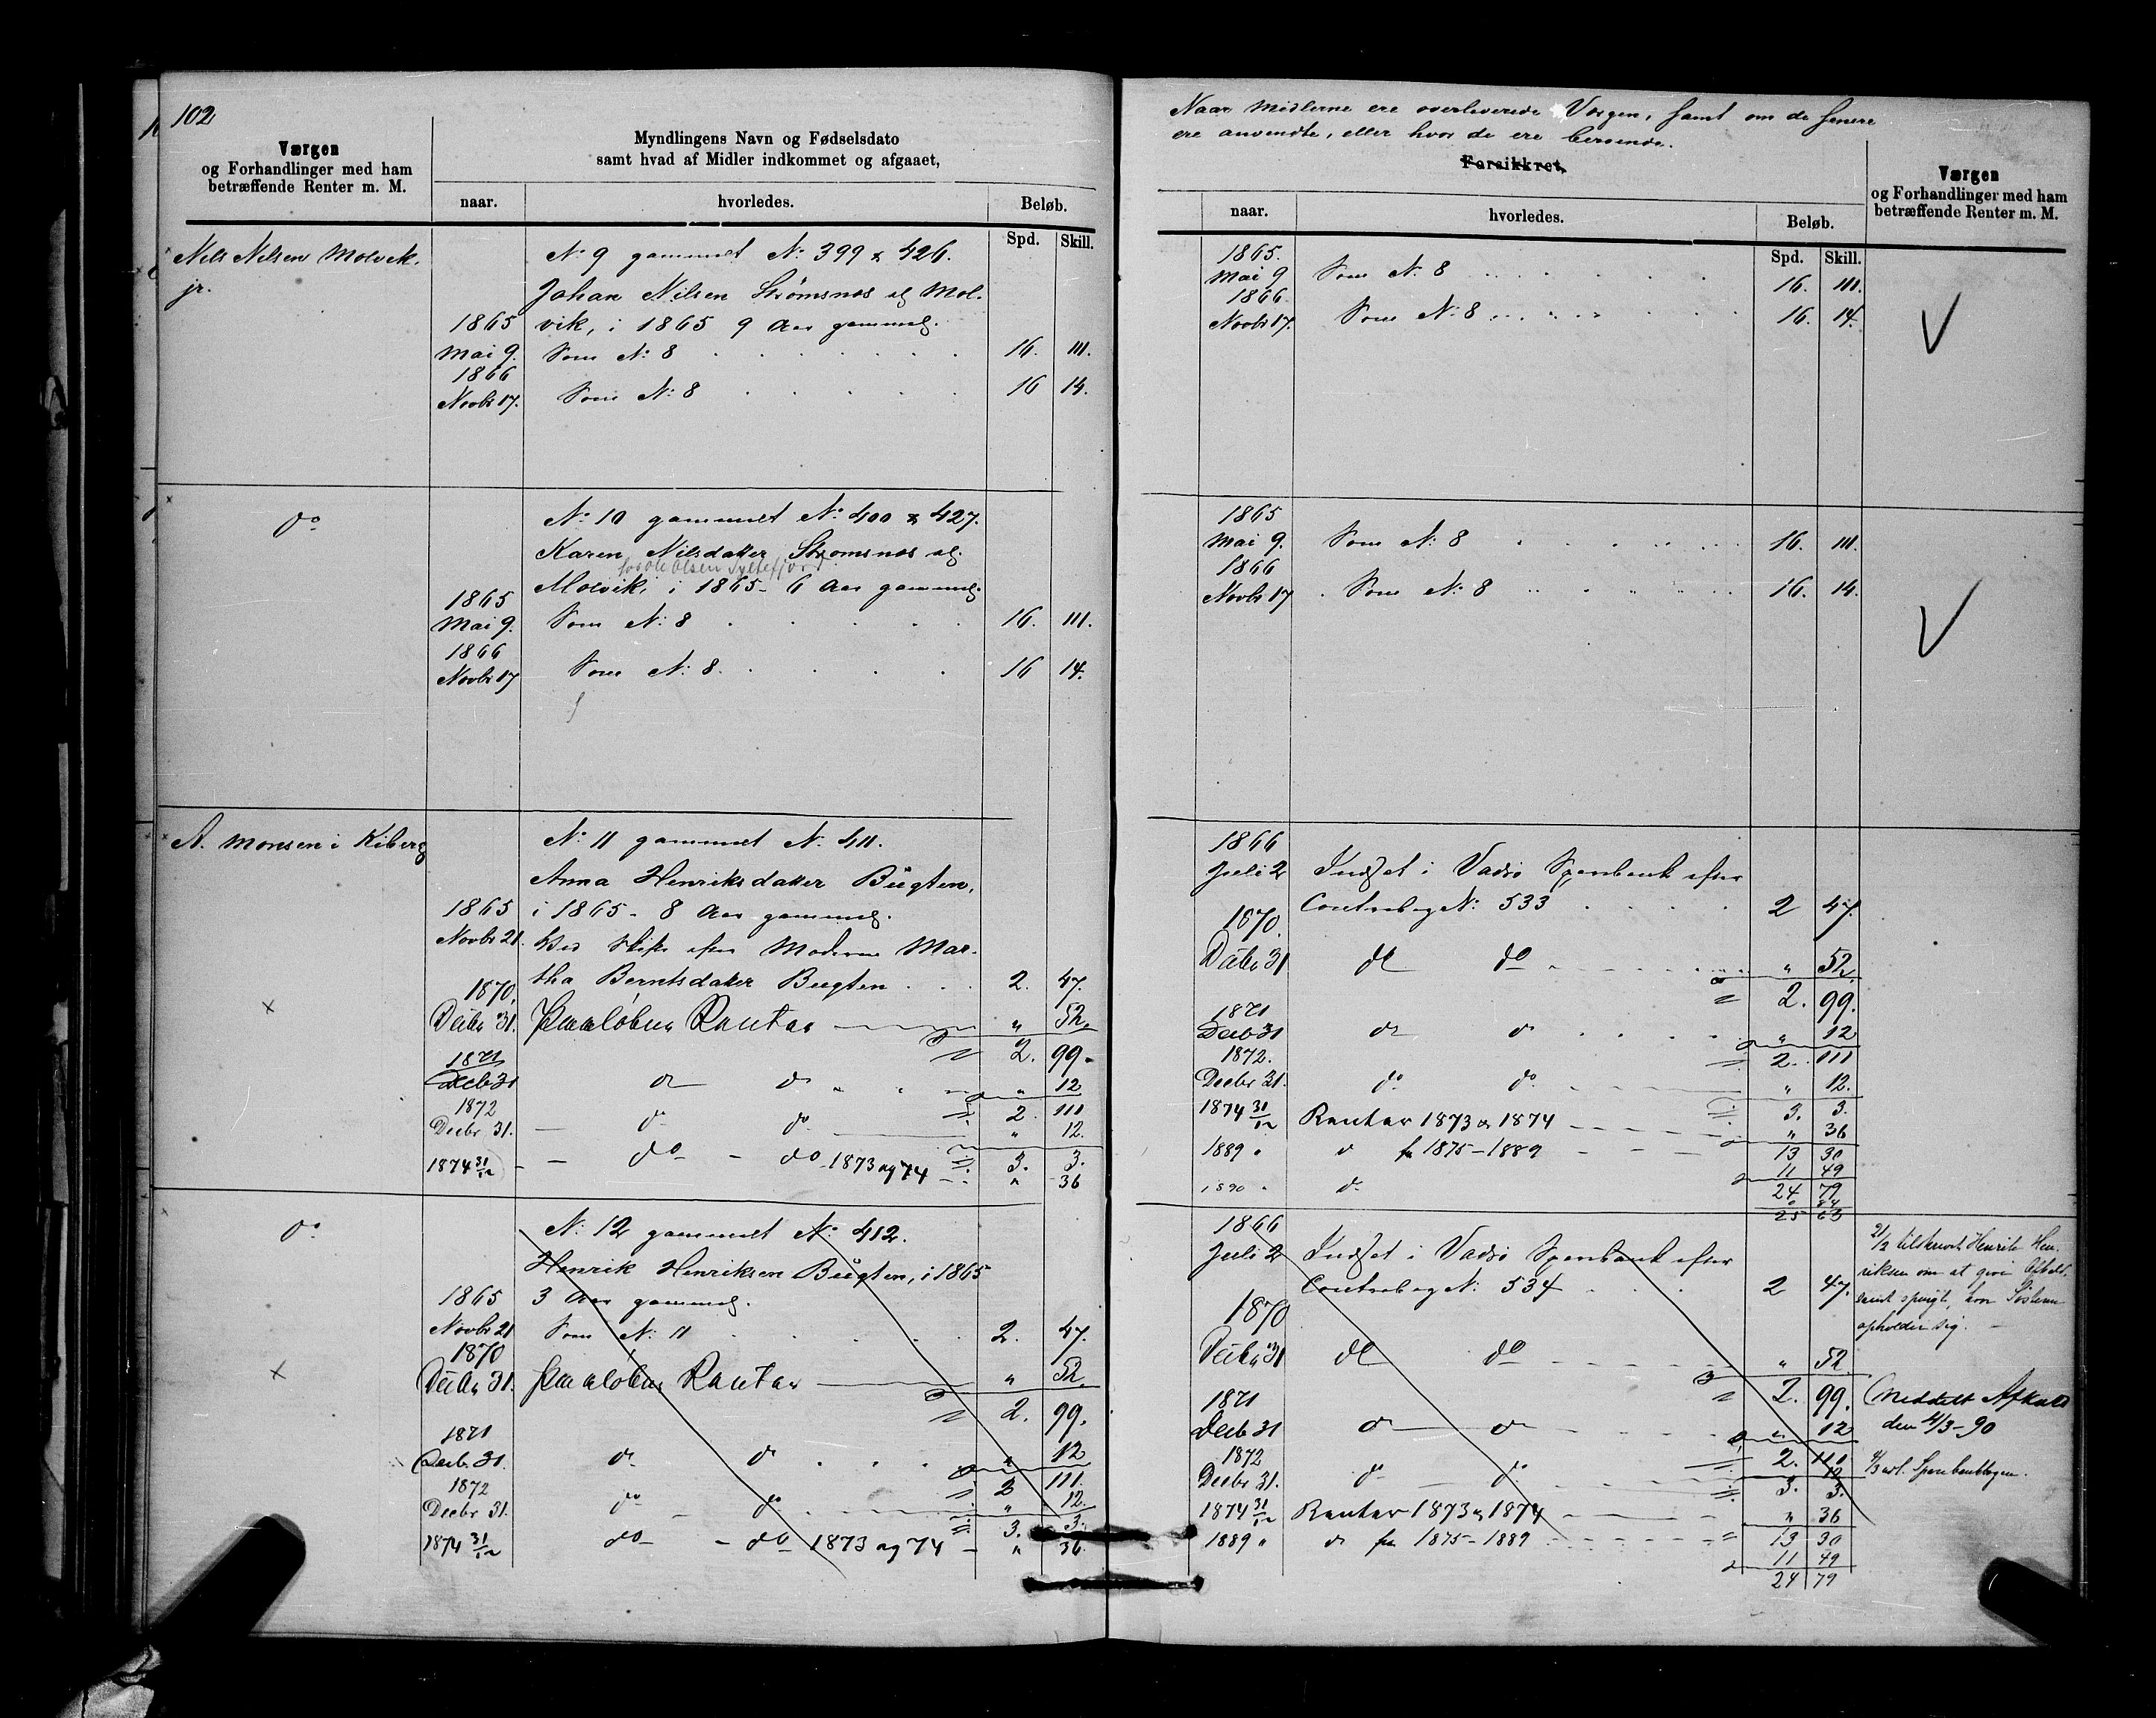 102
Værgen
og Forhandlinger med ham
betræffende Renter m. M.
Myndlingens Navn og Fødselsdato
samt hvad af Midler indkommet og afgaaet,
naar.
hvorledes.
Beløb.
Spd. Skill.
Nils Nilsen Molvik
jr.
No 9 gammelt No 399 & 426.
Johan Nilsen Strømsnes og Mol-
1865 vik, i 1865 9 Aar gammel.
Mai 9. Som No 8 16. 111.
1866
Novbr 17. Som No 8 16 14.
do
No 10 gammelt No 400 & 427.
Karen Nilsdatter Strømsnes og
Olsen Syltefjord
Molvik, i 1865 - 6 Aar gammel.
1865
Mai 9. Som No 8 16. 111.
1866
Novbr 17 Som No 8 16 14.
A. Monsen i Kiberg
No 11 gammelt No 411.
Anna Henriksdatter Bugten,
1865 i 1865 - 8 Aar gammel.
Novbr 21. Ved Skifte efter Moderen Mar-
tha Berntsdatter Bugten 2. 47.
1870,
Decbr 31. Paaløbne Renter " 52.
2. 99.
1871
Decb 31 do do " 12
1872 2. 111
Decbr 31. do do " 12.
3. 3.
1874 31/12 - do - do 1873 og 74 " 36
do
No 12 gammelt No 412.
Henrik Henriksen Bugten, i 1865
1865 3 Aar gammel.
Novbr 21 Som No 11 2. 47.
1870
Decbr 31. Paaløbne Renter " 52.
2. 99.
1871
Decb. 31. do do " 12
1872 2 111.
Decbr 31. do do " 12.
3. 3.
1874 31/12 do - do 1873 og 74 - " 36.
Naar Midlerne ere overleverede Værgen, samt om de senere
ere anvendte, eller hvor de ere beroende.
Forsikkret,
naar.
hvorledes.
Beløb.
Spd. Skill.
Værgen
og Forhandlinger med ham
betræffende Renter m. M.
1865.
Mai 9 Som No 8 16. 111.
1866
Novbr 17. Som No 8 16. 14.
1865
Mai 9. Som No 8 16. 111.
1866
Novbr 17 Som No 8 16. 14.
1866
Juli 2 Indsat i Vadsø Sparebank efter
Contrabog No: 533 2 47.
1870.
Decbr 31 do do " 52.
2. 99.
1871
Decb 31 do do " 12
1872. 2. 111
Decbr 31. do do " 12.
3. 3.
1874 31/12 Renter 1873 og 1874 " 36
1889 " do fra 1875 - 1889 13 30
11 49
1890 " do 24 79
" 84
25 63
1866
Juli 2 Indsat i Vadsø Sparebank efter
Contrabog No: 534 2 47.
1870
Decbr 31 do do " 52
2. 99.
1871
Decb 31 do do " 12
1872 2. 111
Decbr 31. do do " 12
3. 3.
1874 31/12 Renter 1873 og 1874 " 36
1889 " do fra 1875 - 1889 13 30
11 49
24 79
21/2 tilskrevet Henrik Hen-
riksen om at give Afkald,
samt spurgt, hvor Søsteren
opholder sig.
Meddelt Afkald
den 4/3-90
4/3 Sparebankbogen.